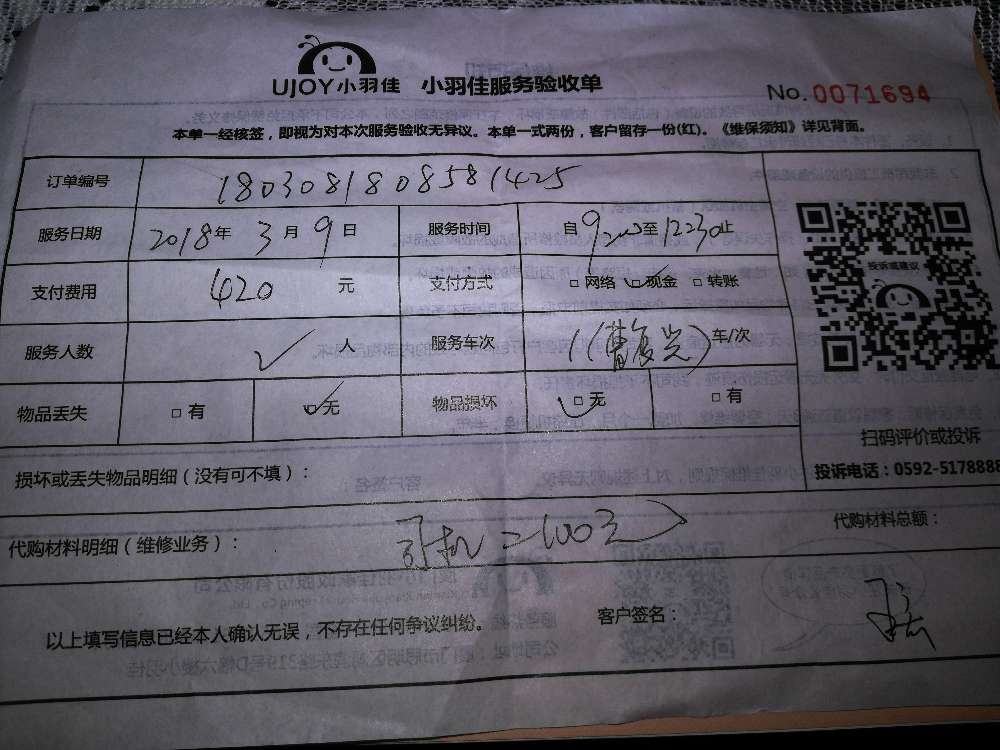 UJOY小羽佳 小羽佳服务验收单 No.0071694
本单一经核签，即视为对本次服务验收无异议。本单一式两份，客户留存一份(红)。《维保须知》详见背面。
订单编号 180308180858 1425
服务日期 2018年 3月 9日 服务时间 自9:00至12:30止
支付费用 420 元 支付方式 □网络 ☑现金 □转账
服务人数 ✓ 人 服务车次 1 车/次
物品丢失 □有 ☑无 物品损坏 ☑无 □有
投诉或建议
扫码评价或投诉
投诉电话：0592-5178888
损坏或丢失物品明细（没有可不填）：
代购材料明细（维修业务）： 代购材料总额：
以上填写信息已经本人确认无误，不存在任何争议纠纷。 客户签名：